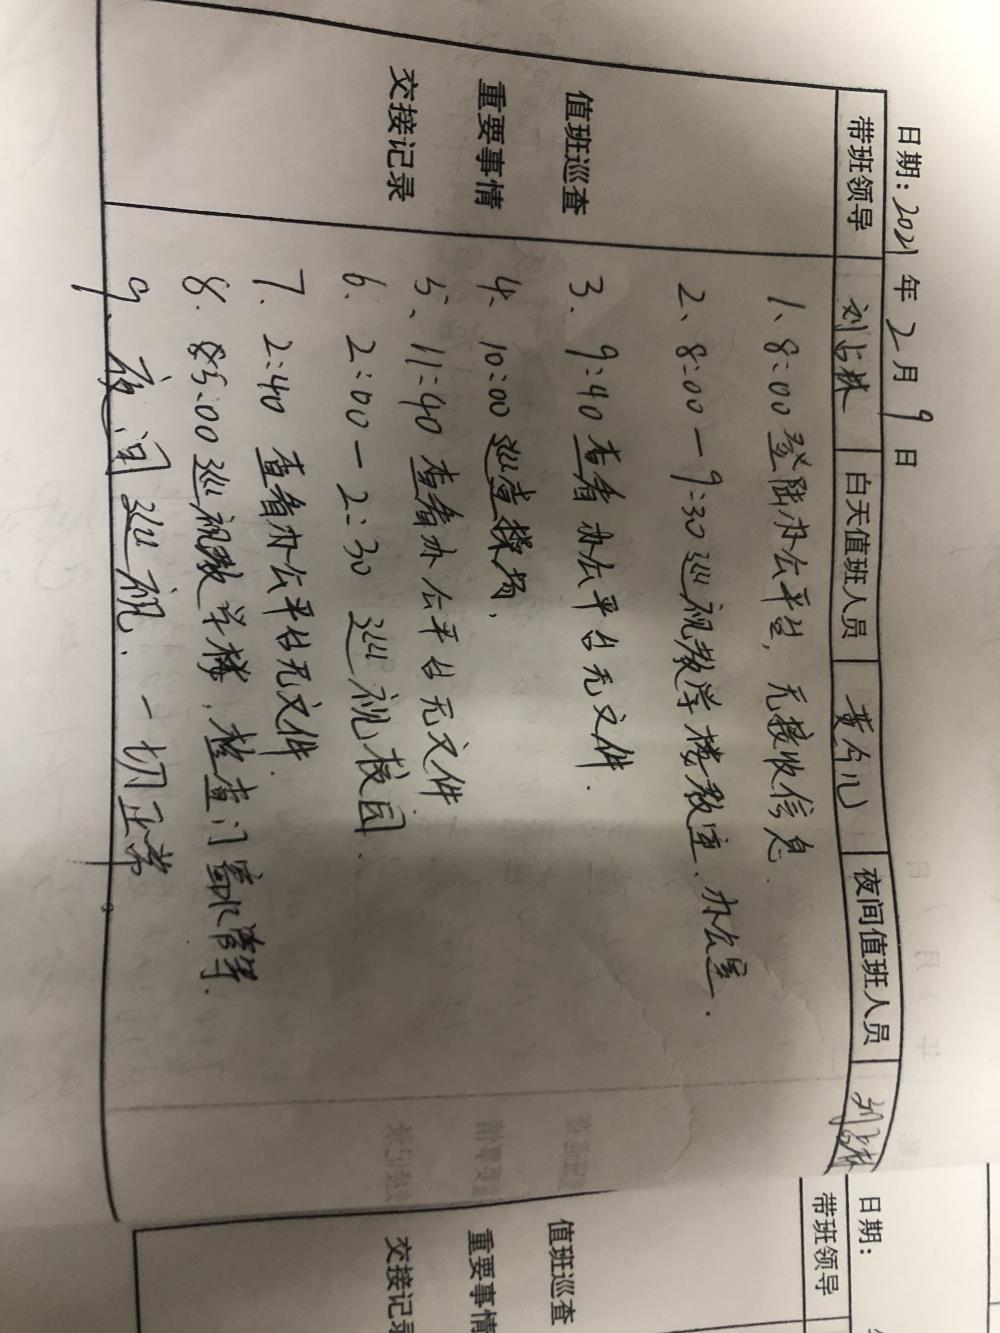 日期：2021年2月9日
带班领导 刘占林 白天值班人员 夜间值班人员 刘占林
值班巡查
重要事情
交接记录
1、8:00登陆办公平台，无接收信息.
2、8:00—9:30巡视教学楼教室、办公室.
3、9:40查看办公平台无文件.
4、10:00巡查操场.
5、11:40查看办公平台无文件.
6、2:00—2:30巡视校园.
7、2:40查看办公平台无文件.
8、5:00巡视教学楼，检查门窗水
9、夜间巡视.一切正常
日期：
带班领导
值班巡查
重要事情
交接记录